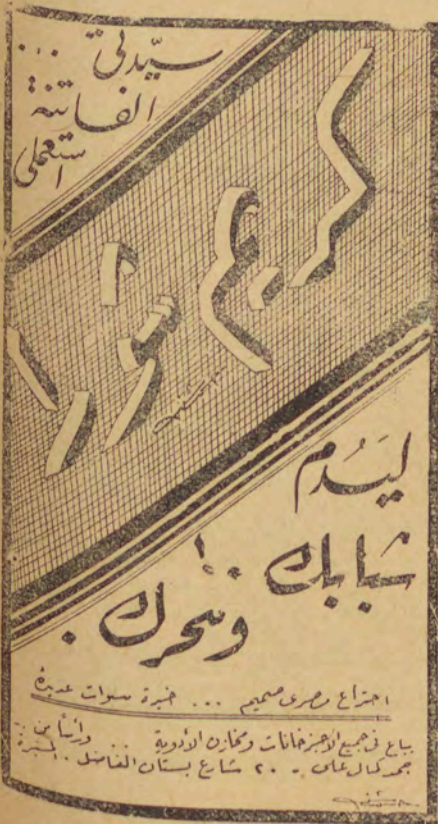 سيدتي ...
الفاتنة
استعملي
كريم نورا
ليدم
شبابك ..!
وسحرك .
اختراع مصرى صميم ... خبرة سنوات عديدة
يباع فى جميع الاجزخانات ومخازن الأدوية ورأسا من :
محمد كمال على - ٢٠ شارع بستان الفاضل .